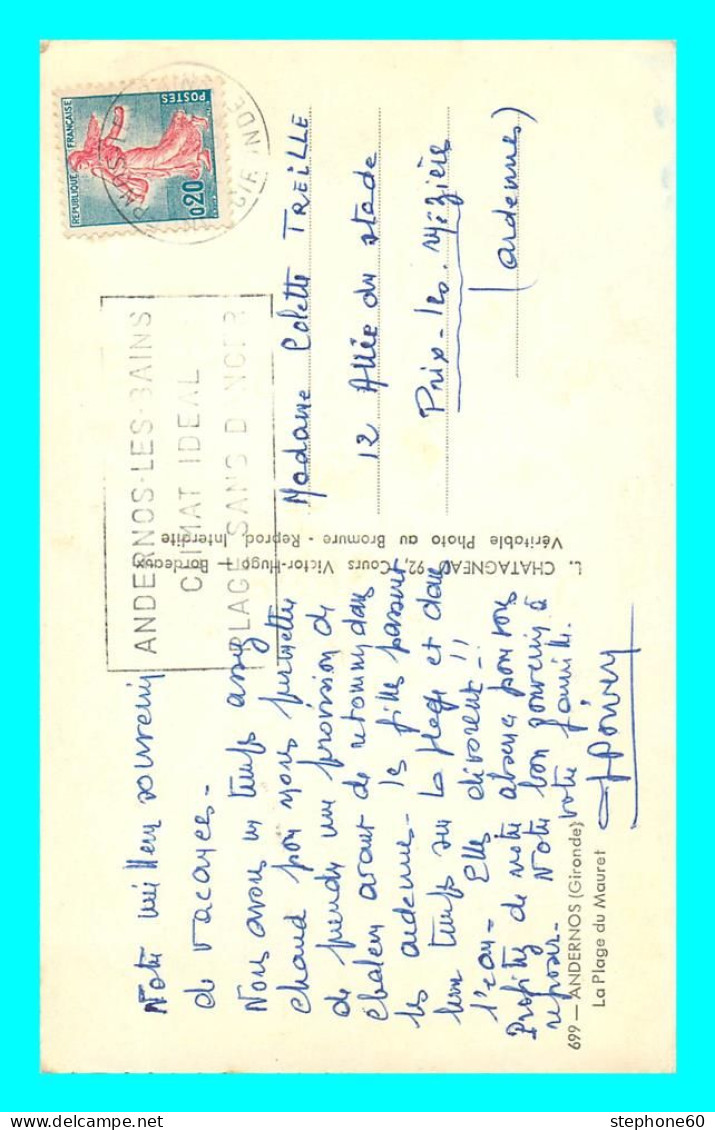 Notre meilleur souvenir
de vacances -
Nous avons un temps assez
chaud pour nous permettre
de prendre une provision de
chaleur avant de retourner dans
les ardennes - les filles passent
leur temps sur la plage et dans
l'eau - Elles dévorent !!
Profitez de notre absence pour vous
reposer - Notre bon souvenir à
votre famille.
699 — ANDERNOS (Gironde)
La Plage du Mauret
L. CHATAGNEAU 92, Cours Victor-Hugo — Bordeaux
Véritable Photo au Bromure - Reprod. Interdite
ANDERNOS-LES-BAINS
CLIMAT IDEAL
PLAGE SANS DANGER
REPUBLIQUE FRANÇAISE
POSTES
0,20
GIRONDE
Madame Colette TREILLE
12 Allée du stade
Prix-les-Mézières
(ardennes)
stephone60